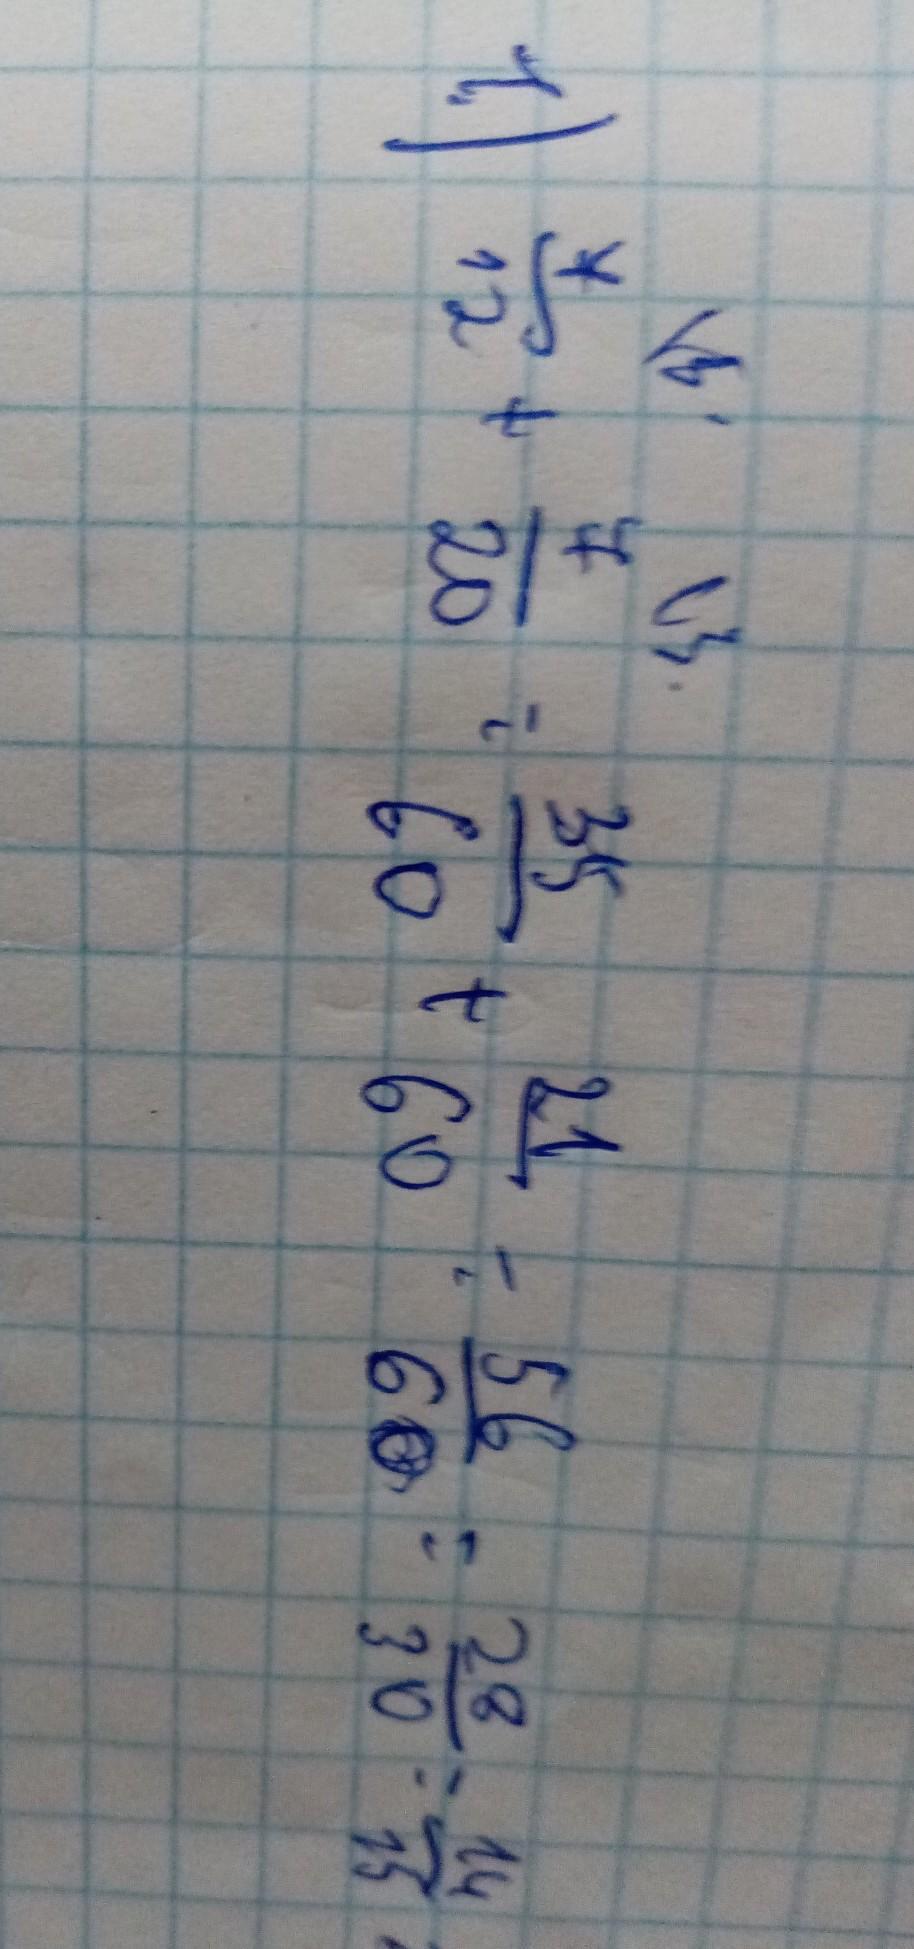 1) 7/12 + 7/20 = 35/60 + 21/60 = 56/60 = 28/30 = 14/15